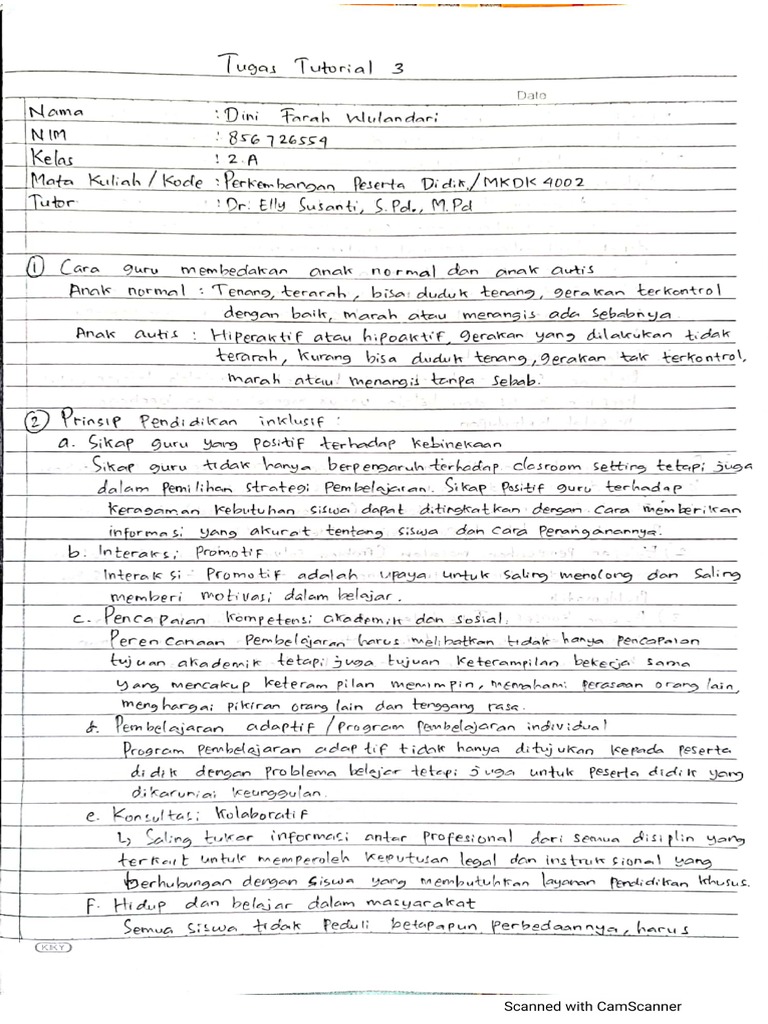 Tugas Tutorial 3
Date
Nama : Dini Farah Wulandari
NIM : 856726554
Kelas : 2.A
Mata Kuliah / Kode : Perkembangan Peserta Didik / MKDK 4002
Tutor : Dr. Elly Susanti, S.Pd., M.Pd
① Cara guru membedakan anak normal dan anak autis
Anak normal : Tenang, terarah, bisa duduk tenang, gerakan terkontrol
dengan baik, marah atau menangis ada sebabnya.
Anak autis : Hiperaktif atau hipoaktif, gerakan yang dilakukan tidak
terarah, kurang bisa duduk tenang, gerakan tak terkontrol,
marah atau menangis tanpa sebab.
② Prinsip Pendidikan inklusif :
a. Sikap guru yang positif terhadap kebinekaan
Sikap guru tidak hanya berpengaruh terhadap clasroom setting tetapi juga
dalam Pemilihan strategi Pembelajaran. Sikap Positif guru terhadap
keragaman kebutuhan siswa dapat ditingkatkan dengan cara memberikan
informasi yang akurat tentang siswa dan cara Penanganannya.
b. Interaksi Promotif
Interaksi Promotif adalah upaya untuk saling menolong dan saling
memberi motivasi dalam belajar.
c. Pencapaian kompetensi akademik dan sosial.
Perencanaan Pembelajaran harus melibatkan tidak hanya pencapaian
tujuan akademik tetapi juga tujuan keterampilan bekerja sama
yang mencakup keterampilan memimpin, memahami perasaan orang lain,
menghargai pikiran orang lain dan tenggang rasa.
d. Pembelajaran adaptif / Program pembelajaran individual
Program pembelajaran adaptif tidak hanya ditujukan kepada peserta
didik dengan problema belajar tetapi juga untuk peserta didik yang
dikaruniai keunggulan.
e. Konsultasi Kolaboratif
↳ Saling tukar informasi antar profesional dari semua disiplin yang
terkait untuk memperoleh keputusan legal dan instruksional yang
berhubungan dengan siswa yang membutuhkan layanan Pendidikan khusus.
F. Hidup dan belajar dalam masyarakat
Semua siswa tidak Peduli betapapun perbedaannya, harus
KKY
Scanned with CamScanner